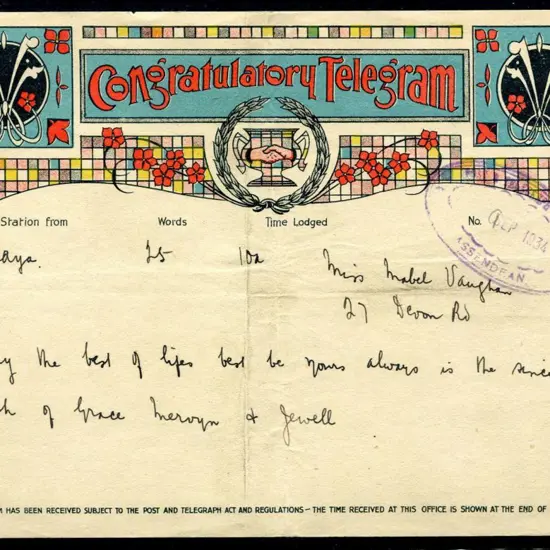 Congratulatory Telegram
Station from Words Time Lodged No.
ays. 25 10a Miss Mabel Vaughan
27 Devon Rd
SEP 1934
ASSENDEAN
y the best of lifes best be yours always is the since
h of Grace Mervyn & Jewell
M HAS BEEN RECEIVED SUBJECT TO THE POST AND TELEGRAPH ACT AND REGULATIONS — THE TIME RECEIVED AT THIS OFFICE IS SHOWN AT THE END OF